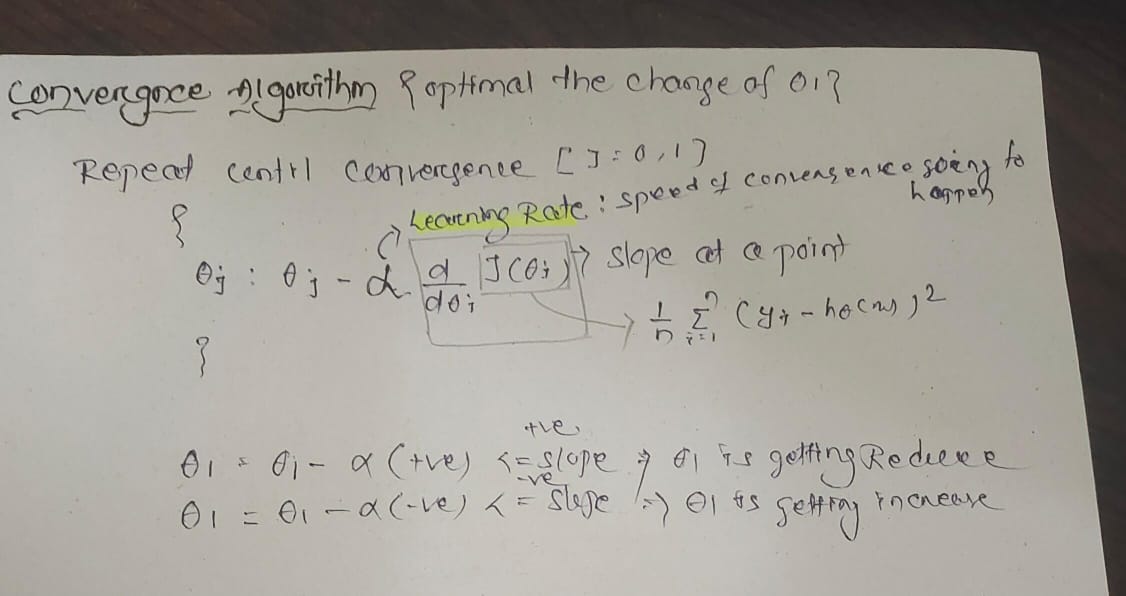 Convergnce Algorithm { optimal the change of θ1 }
Repeat centrl convergence [J = 0, 1]
{
Learning Rate : speed of convergence going to happen
θj : θj - α d/dθj J(θj) → slope at a point
→ 1/n Σ i=1 n (yi - hθ(x))2
}
+ve
θ1 = θ1 - α (+ve) <= slope ⇒ θ1 is getting Reduce
-ve
θ1 = θ1 - α (-ve) <= slope => θ1 is getting increase